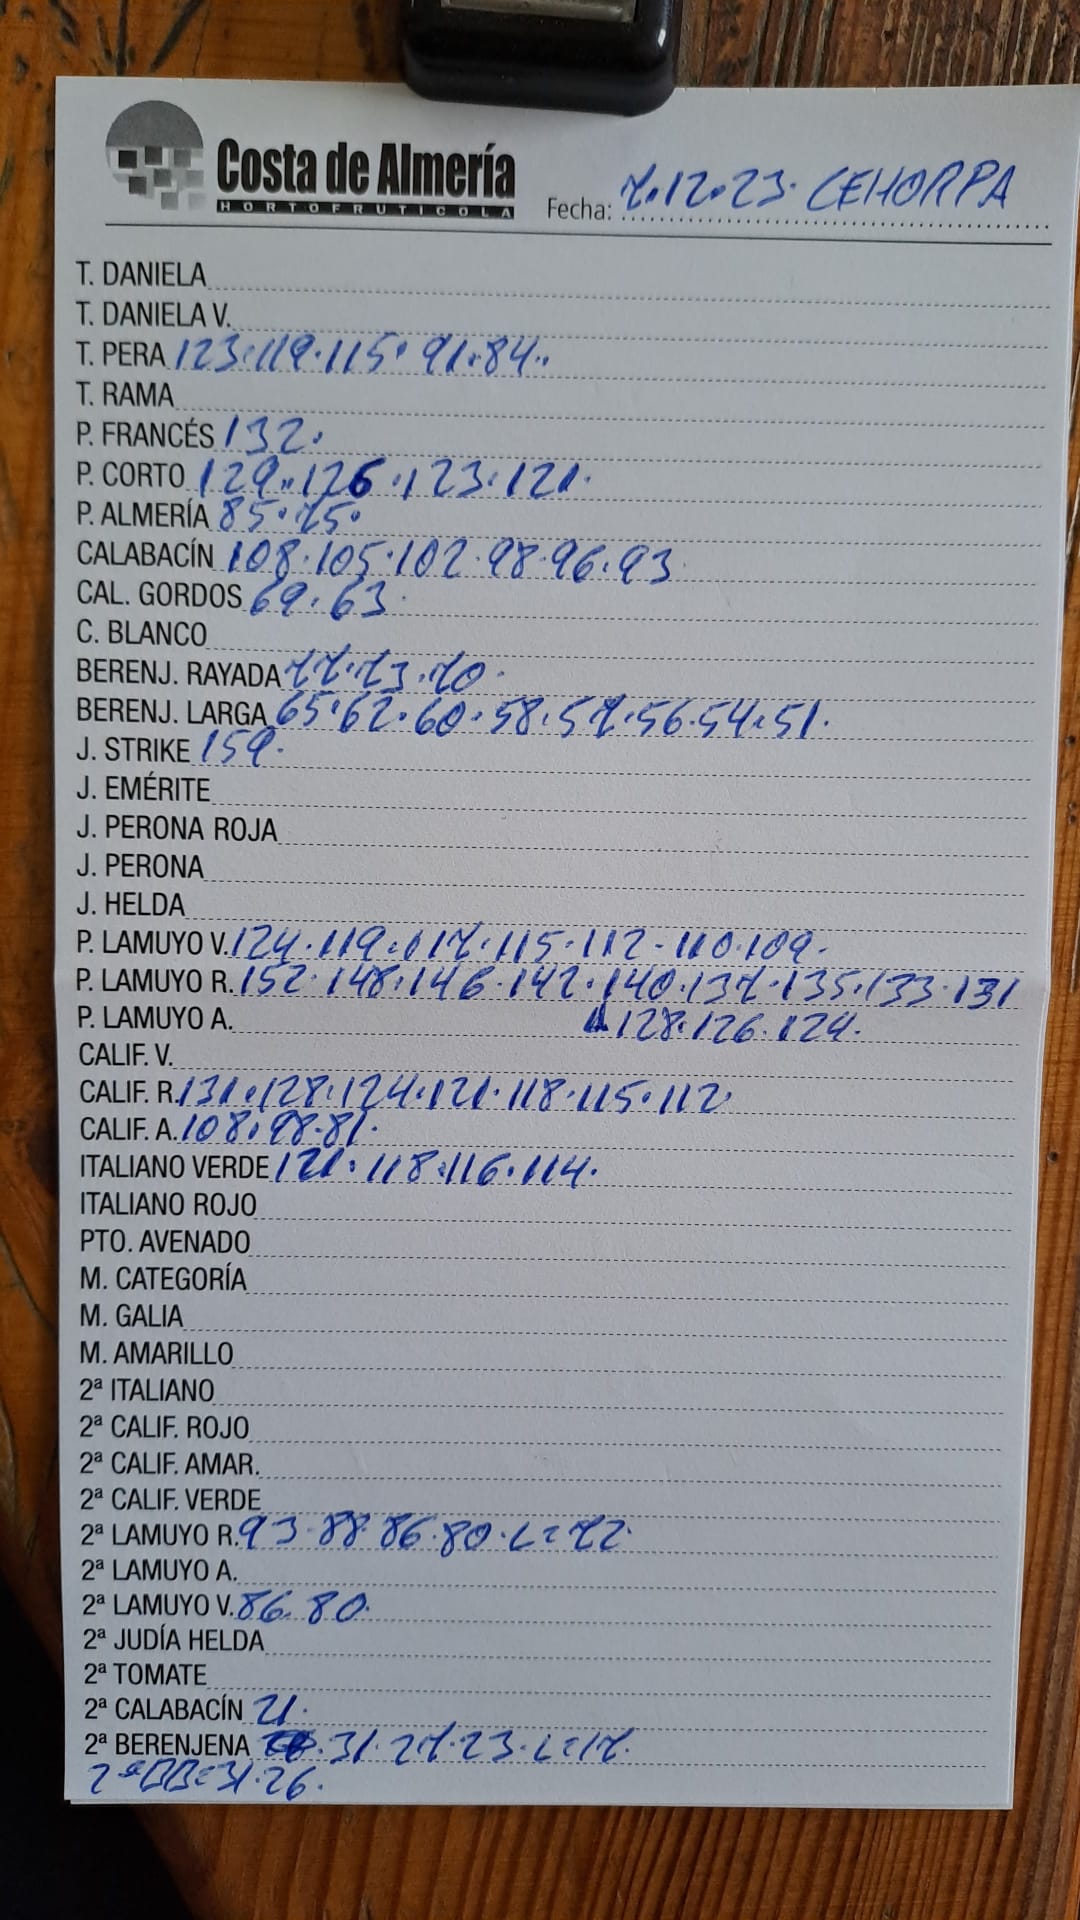 Costa de Almería
HORTOFRUTICOLA
Fecha: 7.12.23. CEHORPA
T. DANIELA
T. DANIELA V.
T. PERA 123.119.115.91.84.
T. RAMA
P. FRANCÉS 132.
P. CORTO 129.126.123.121.
P. ALMERÍA 85.75.
CALABACÍN 108.105.102.98.96.93
CAL. GORDOS 69.63.
C. BLANCO
BERENJ. RAYADA 77.73.70.
BERENJ. LARGA 65.62.60.58.57.56.54.51.
J. STRIKE 159.
J. EMÉRITE
J. PERONA ROJA
J. PERONA
J. HELDA
P. LAMUYO V. 124.119.117.115.112-110.109.
P. LAMUYO R. 152.148.146.142.140.137.135.133.131
P. LAMUYO A. 128.126.124.
CALIF. V.
CALIF. R. 131.128.124.121.118.115.112
CALIF. A. 108.98.81.
ITALIANO VERDE 121.118.116.114.
ITALIANO ROJO
PTO. AVENADO
M. CATEGORÍA
M. GALIA
M. AMARILLO
2ª ITALIANO
2ª CALIF. ROJO
2ª CALIF. AMAR.
2ª CALIF. VERDE
2ª LAMUYO R. 93.88.86.80.L=72
2ª LAMUYO A.
2ª LAMUYO V. 86.80.
2ª JUDÍA HELDA
2ª TOMATE
2ª CALABACÍN 21.
2ª BERENJENA 31.27.23.L=17.
31.26.